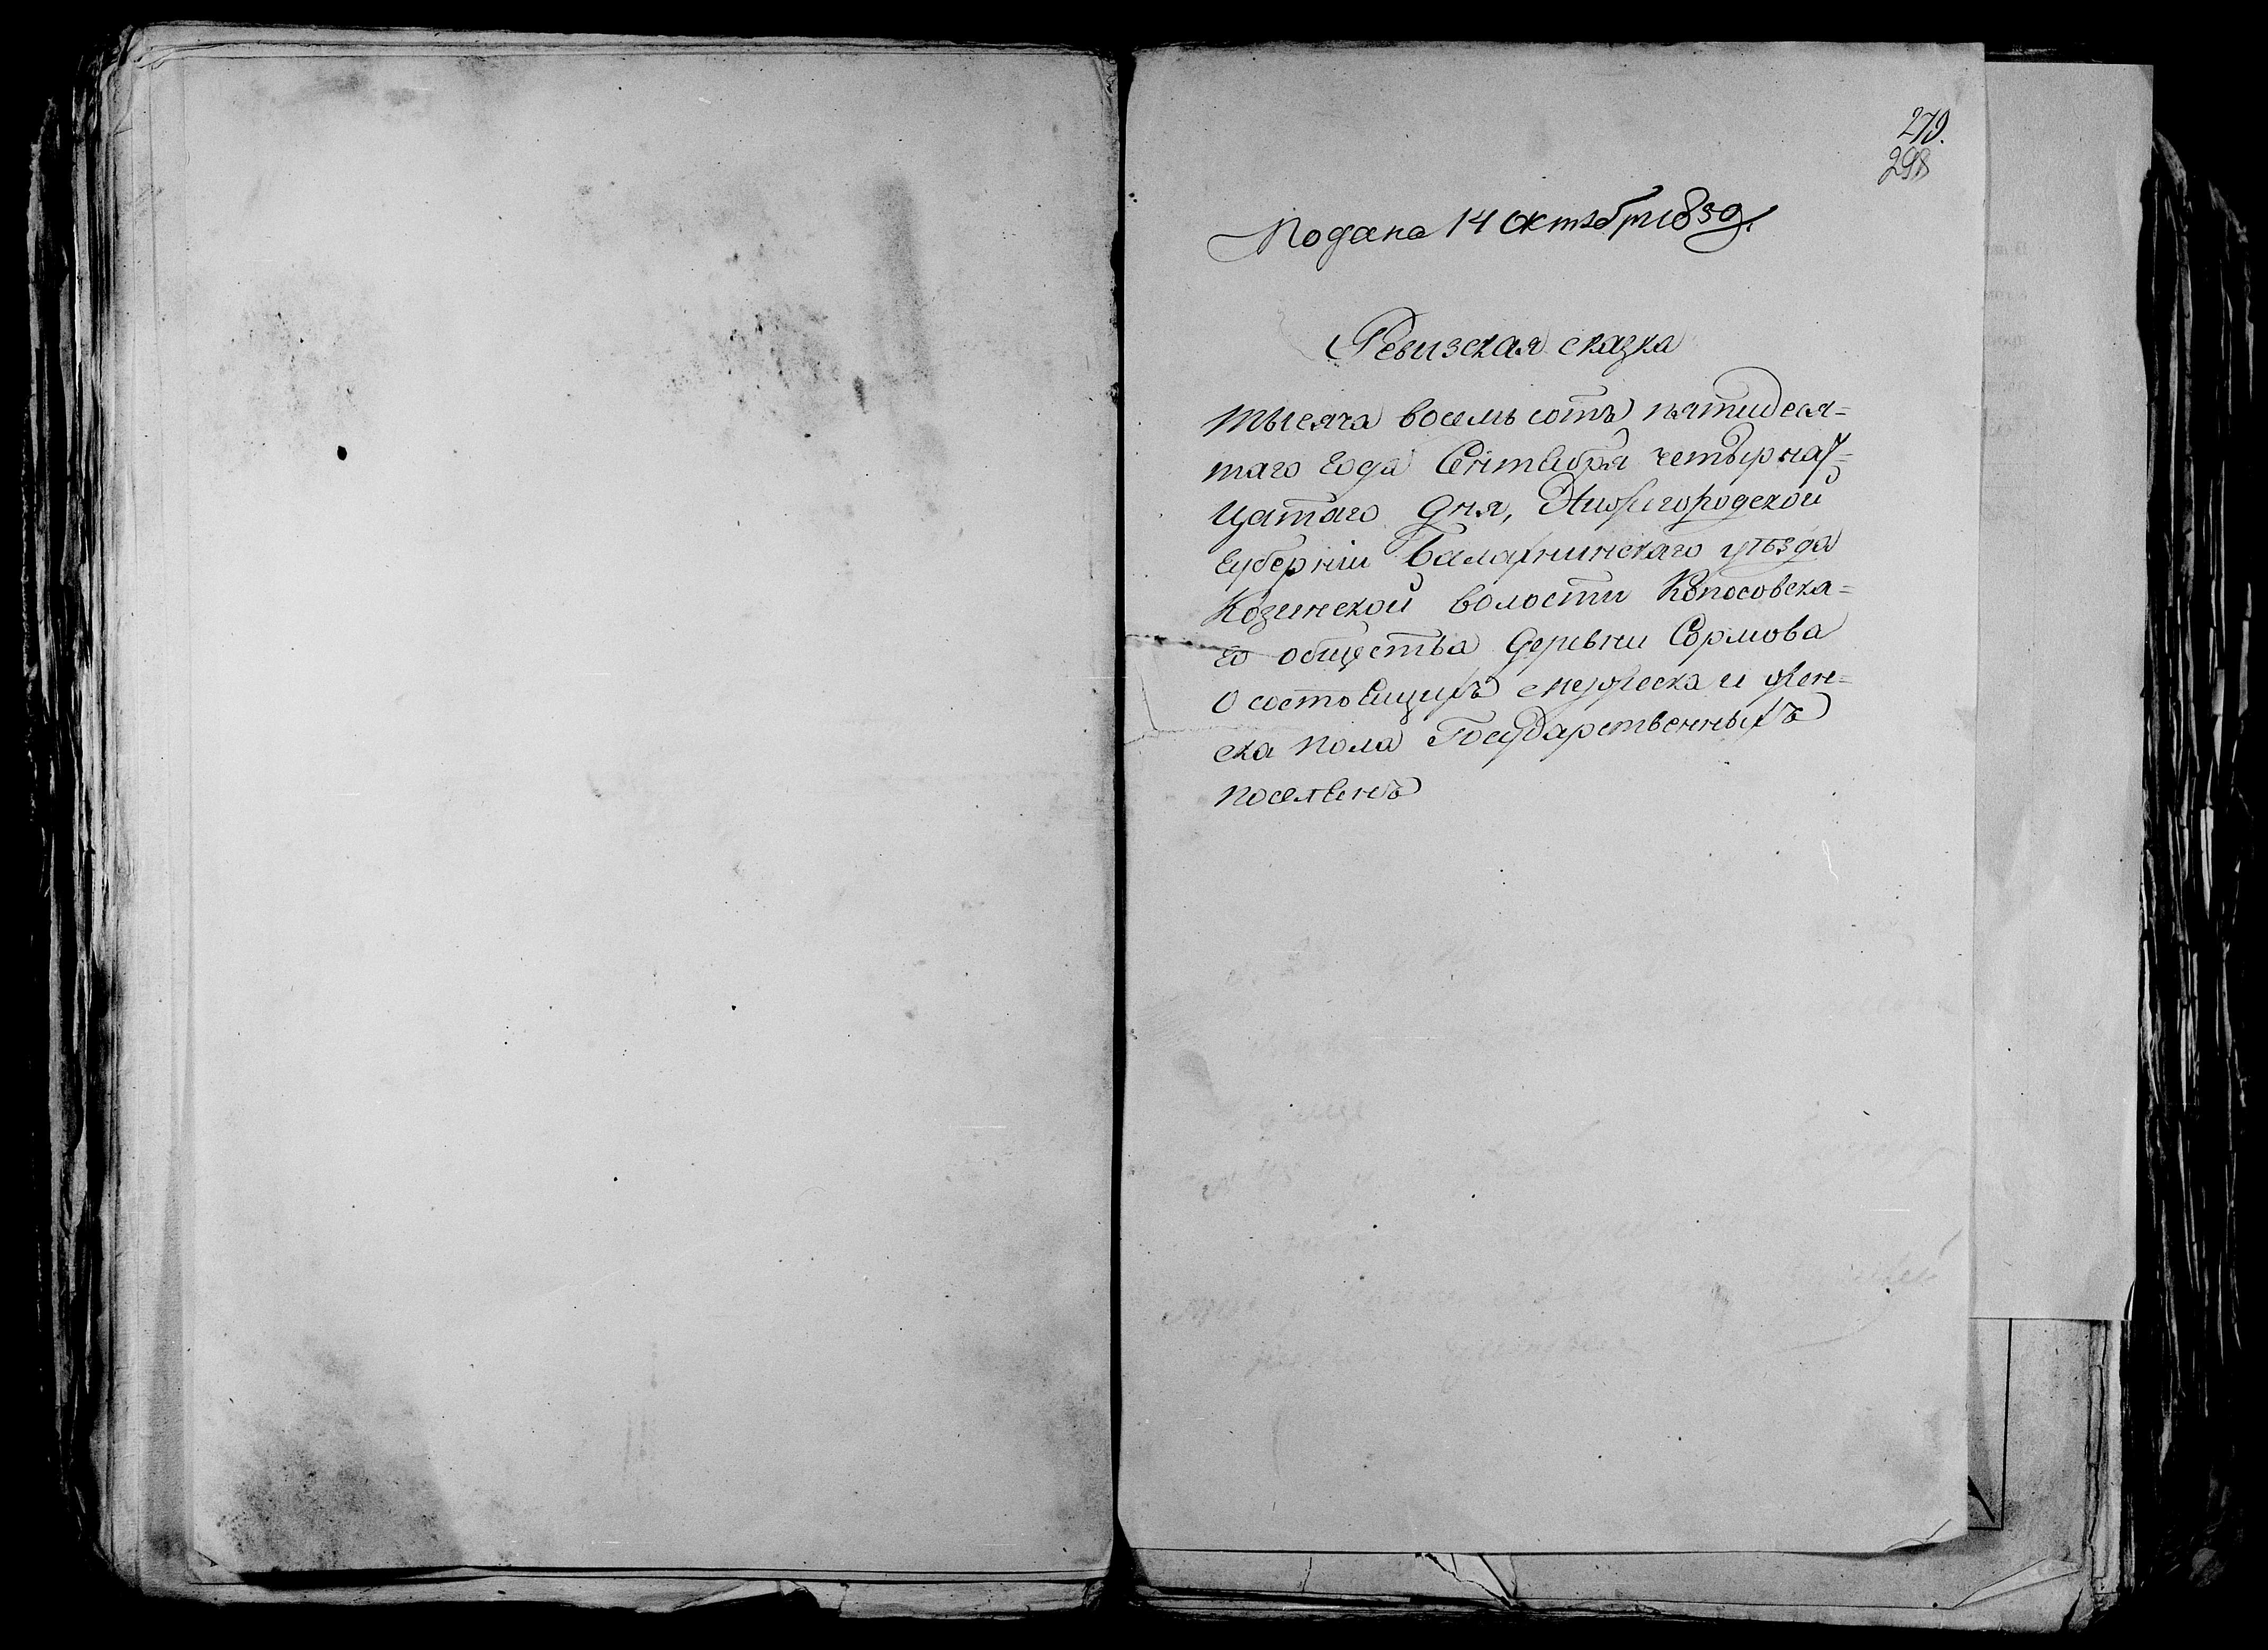 279.
298
Подана 14 октября 1850 г.
Ревизская сказка
тысяча восемь сотъ пятидеся=
таго года Сентебря четырнад=
цатаго дня, Нижегородской
губерніи Балахнинскаго уѣзда
Козинской волости Копосовска=
го общества деревни Сормова
О состоещихъ мужеска и жен=
ска пола Государственныхъ
поселенъ